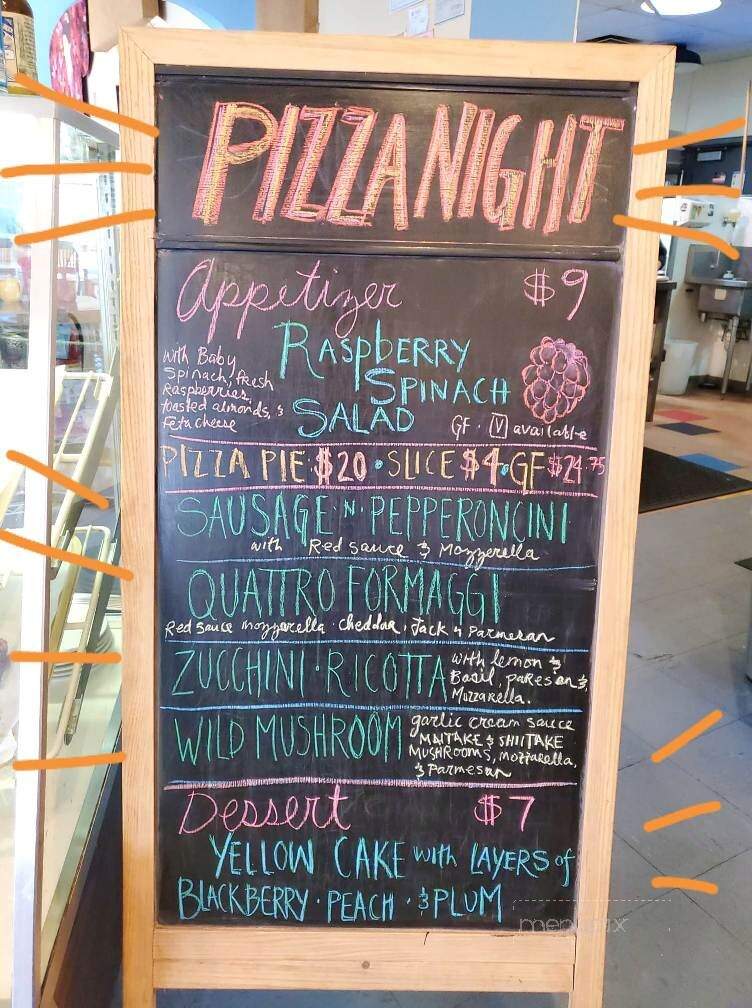 PIZZA NIGHT
Appetizer $9
RASPBERRY
SPINACH
SALAD
with Baby
Spinach, fresh
Raspberries,
toasted almonds, &
Feta cheese
GF · V available
PIZZA PIE $20 · SLICE $4 · GF $24.75
SAUSAGE 'N' PEPPERONCINI
with Red sauce & Mozzerella
QUATTRO FORMAGGI
Red sauce mozzerella · cheddar, Jack & Parmesan
ZUCCHINI · RICOTTA
with lemon &
Basil, parmesan &
Mozzarella.
WILD MUSHROOM
garlic cream sauce
MAITAKE & SHIITAKE
MUSHROOMS, mozzarella,
& Parmesan
Dessert $7
YELLOW CAKE with LAYERS of
BLACKBERRY · PEACH · & PLUM